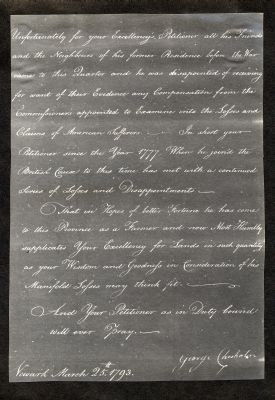 Unfortunately for your Excellency's Petitioner all his Friends
and the Neighbours of his former Residence before the War
came to this Quarter and he was disapointed of receiving
for want of their Evidence any Compensation from the
Commissioners appointed to Examine into the Losses and
Claims of American Sufferers — In short your
Petitioner since the Year 1777 When he joined the
British Cause to this time has met with a continued
Series of Losses and Disappointments —
That in Hopes of better Fortune he has come
to this Province as a Farmer and now Most Humbly
supplicates Your Excellency for Lands in such Quantity
as your Wisdom and Goodness in Consideration of his
Manifold Losses may think fit —
And Your Petitioner as in Duty bound
will ever Pray —
George Chisholm
Newark March 25th 1793.